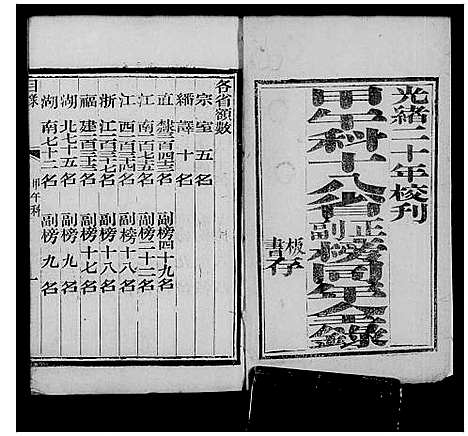 光緒二十年校刊
甲午科十八省正副榜同年全錄
板存
書
各省額數
宗室五名
繙譯十名
直隸百四三名 副榜四十九名
江南百七五名 副榜二十二名
江西百三四名 副榜十八名
浙江百三七名 副榜十八名
福建百三三名 副榜十七名
湖北七十五名 副榜九名
湖南七十三名 副榜九名
目錄
甲午科
一